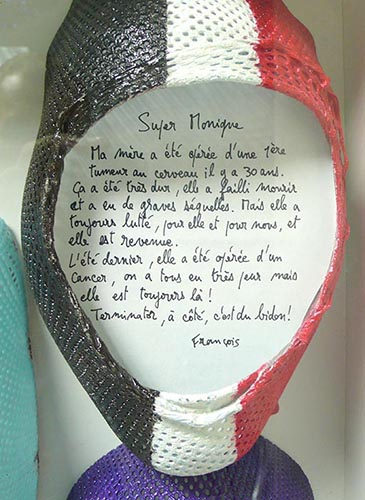 Super Monique
Ma mère a été opérée d'une 1ère
tumeur au cerveau il y a 30 ans.
Ça a été très dur, elle a failli mourir
et a eu de graves séquelles. Mais elle a
toujours lutté, pour elle et pour nous, et
elle est revenue.
L'été dernier, elle a été opérée d'un
Cancer, on a tous eu très peur mais
elle est toujours là !
Terminator, à côté, c'est du bidon !
François